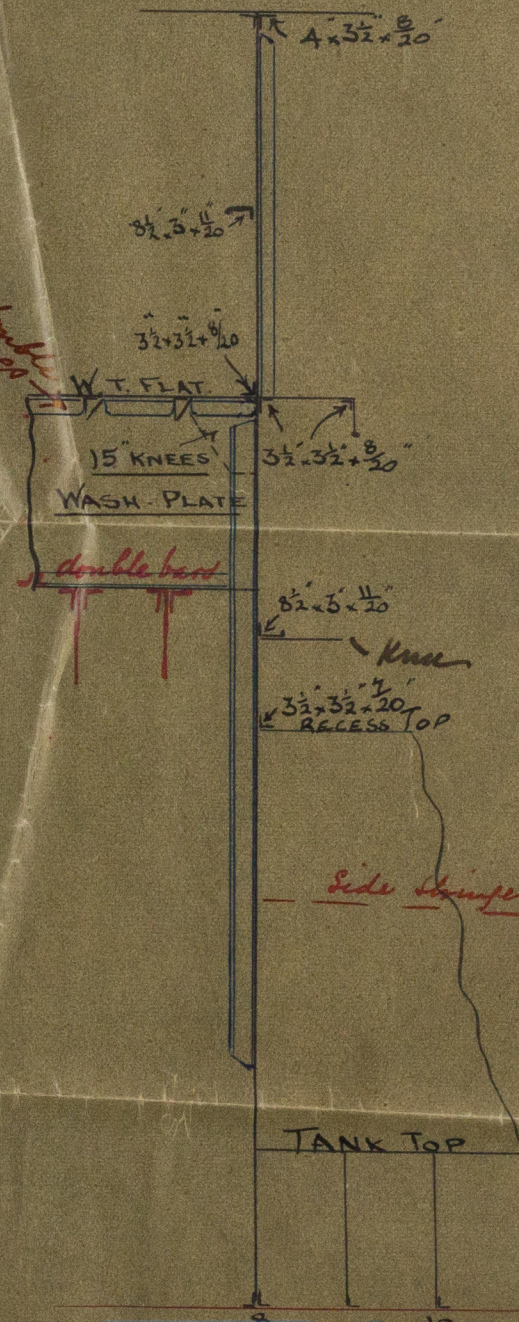 4" × 3½" × 8/20"
8½" × 3" × 11/20"
3½" × 3½" × 8/20"
W. T. FLAT.
15" KNEES
3½" × 3½" × 8/20"
WASH-PLATE
double bars
8½" × 3" × 11/20"
Knee
3½" × 3½" × 7/20"
RECESS TOP
Side stringe
TANK TOP